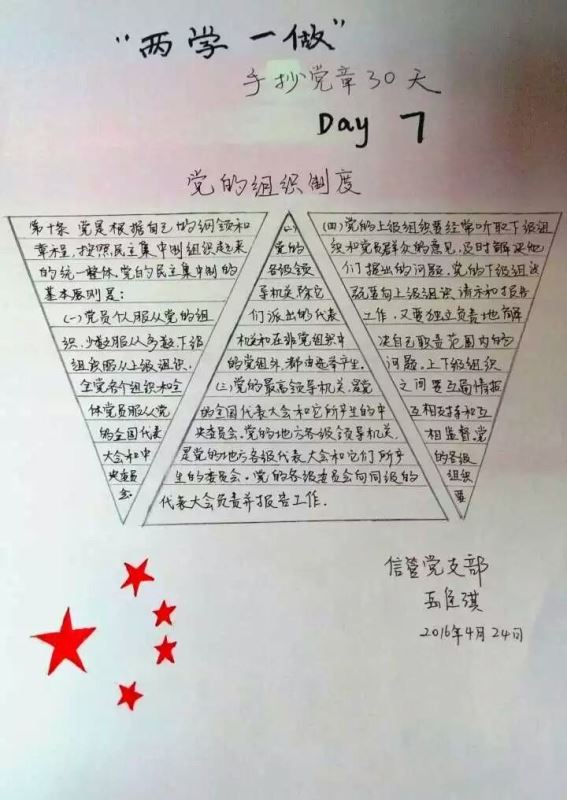 “两学一做”
手抄党章30天
Day 7
党的组织制度
第十条 党是根据自己的纲领和
章程,按照民主集中制组织起来
的统一整体,党的民主集中制的
基本原则是:
(一)党员个服从党的组
织,少数服从多数,下级
组织服从上级组织,
全党各个组织和全
体党员服从党
的全国代表
大会和中
央委员
会.
(二)
党的
各级领
导机关,除它
们派出的代表
机关和在非党组织中
的党组外,都由选举产生.
(三)党的最高领导机关,是党
的全国代表大会和它所产生的中
央委员会.党的地方各级领导机关,
是党的地方各级代表大会和它们所产
生的委员会.党的各级委员会向同级的
代表大会负责并报告工作.
(四)党的上级组织要经常听取下级组
织和党员群众的意见,及时解决他
们提出的问题.党的下级组织
既要向上级组织请示和报告
工作,又要独立负责地解
决自己职责范围内的
问题.上下级组织
之间要互通情报
互相支持和互
相监督,党
的各级
组织
要
信管党支部
2016年4月24日